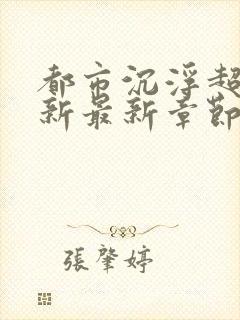 都市沉浮超
新最新章節
張肇婷